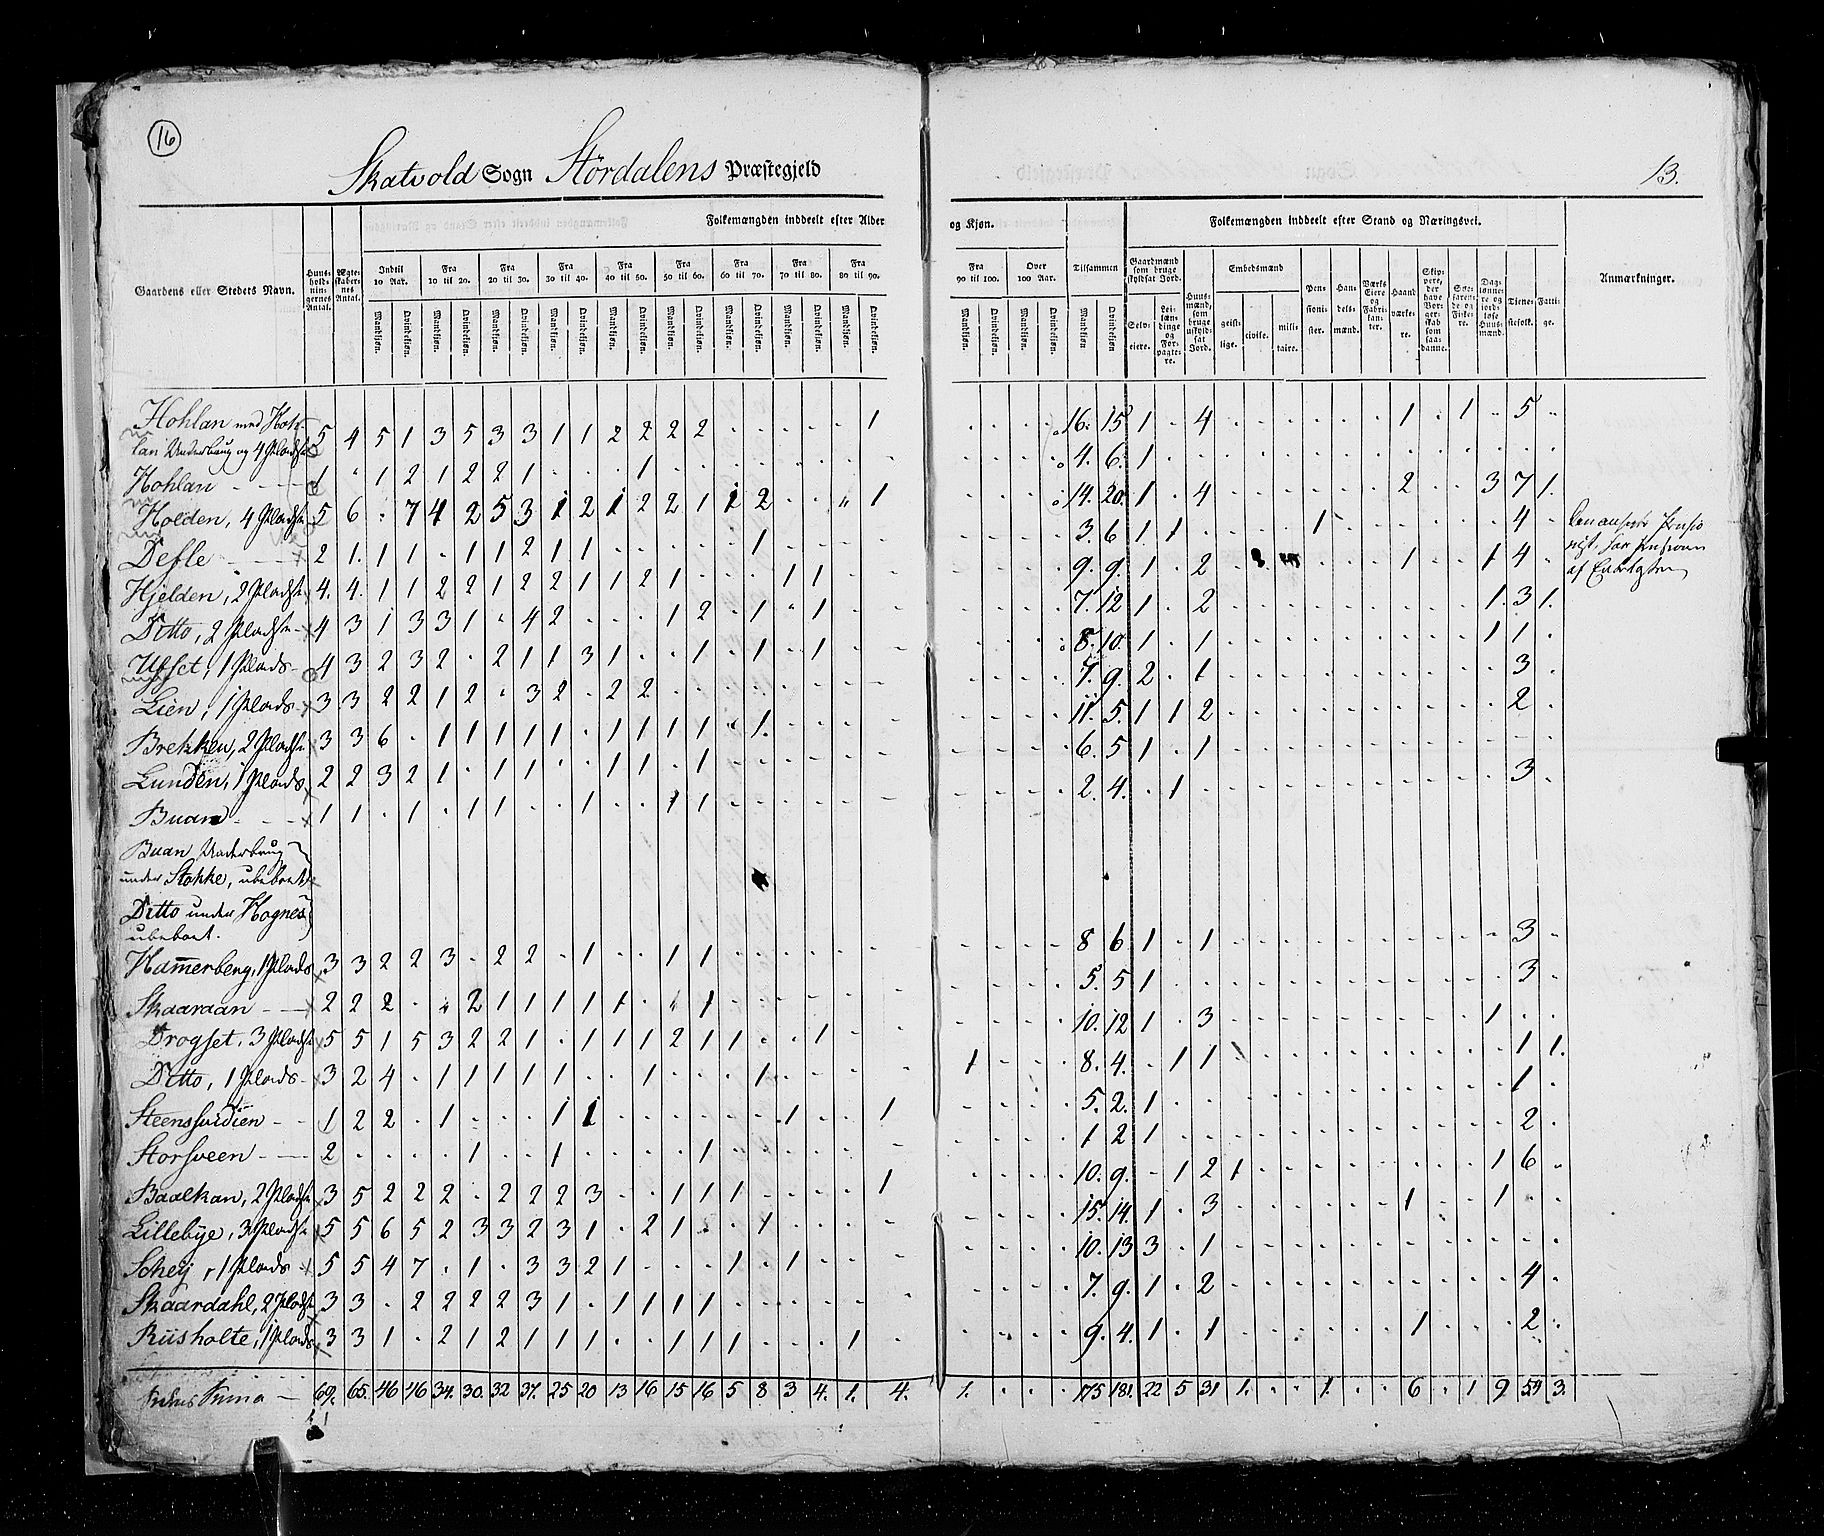 16
Skatvold Sogn Stördalens Præstegjeld
13.
Folkemængden inddeelt efter Alder og Kjøn.
Folkemængden inddeelt efter Stand og Næringsvei.
Gaardens eller Stedets Navn.
Huusholdningernes Antal.
Ægteskabernes Antal.
Indtil 10 Aar.
Fra 10 til 20.
Fra 20 til 30.
Fra 30 til 40.
Fra 40 til 50.
Fra 50 til 60.
Fra 60 til 70.
Fra 70 til 80.
Fra 80 til 90.
Fra 90 til 100.
Over 100 Aar.
Tilsammen
Mandkjøn. Qvindekjøn.
Gaardmænd som bruge skyldsat Jord.
Selveiere.
Leilændinge og Forpagtere.
Huusmænd, som bruge uskyldsat Jord.
Embedsmænd
geistlige. civile. militaire.
Pensionister.
Handelsmænd.
Værks Eiere og Fabrikanter.
Haandværkere.
Skippere, der have Borgerskab som saadanne.
Søefarende og Fiskere.
Daglønnere og jordløse Huusmænd.
Tjenestefolk.
Fattige.
Anmærkninger.
Hohlan med Hoh-
lan Underbrug og 4 Pladse 5 4 5 1 3 5 3 3 1 1 2 2 2 2 1 16. 15 1 4 1 1 5
Hohlan 1 1 2 1 2 2 1 1 4. 6. 1
Holden, 4 Pladse 5 6 7 4 2 5 3 1 2 1 2 2 1 1 2 1 14. 20. 1 4 2 3 7 1.
Defle 2 1. 1 1 1 1 2 1 1 1 3. 6 1 1 1 4
Hjelden, 2 Pladse 4. 4. 1 1 2 2 1 2 2 1 1 2 1 1 1 9. 9. 1 2 1 1 4
Ditto, 2 Pladse 4 3 1 3 3 1 4 2 1 2 1 1 7. 12 1 2 1. 3 1.
Ufset, 1 Plads 4 3 2 3 2 2 1 1 3 1 1 1 1 8. 10. 1 1 1 1
Lien, 1 Plads 3 3 2 2 1 2 3 2 2 2 7. 9. 2 1 3
Brekken, 2 Pladse 3 3 6 1 1 1 1 1 1 1 1 1 1. 11. 5. 1 1 2 2
Lunden, 1 Plads 2 2 3 2 1 1 1 1 1 1 6. 5 1 1
Buan 1 1 1 1 1 1 1 1 2. 4. 1 3
Buan Underbrug
under Stokke, ubeboet
Ditto under Hognes
ubeboet.
Hammerberg, 1 Plads 3 3 2 2 3 2 2 1 1 1 8 6 1 1 3
Skaaraan 2 2 2 2 1 1 1 1 1 1 5. 5 1 3
Drogset, 3 Pladse 5 5 1 5 3 2 2 1 1 1 1 2 1 1 1 10. 12 1 3 1
Ditto, 1 Plads 3 2 4 1 1 1 1 1 1 1 1 8. 4. 1 1 1 1.
Steenshvidien 1 2 2 1 1 1 1 1 5. 2. 1 1
Storsveen 2 1 1 1 1 2 1 2
Baalkan, 2 Pladse 3 5 2 2 2 2 2 2 3 1 1 1 1 10. 9. 1 2 1 1 6
Lillebye, 3 Pladse 5 5 6 5 2 3 3 2 3 1 2 1 1 15. 14. 1 3 1 1
Schey, 1 Plads 5 5 4 7 1 3 3 2 1 1 1 10. 13 3 1
Skaardahl, 2 Pladse 3 3 2 2 2 2 3 1 1 1 1 1 7. 9. 1 2 4
Riisholte, 1 Plads 3 3 1 2 1 2 1 1 1 1 1 1 1 9. 4. 1 1 1 2
69. 65. 46 46 34. 30. 32 37. 25 20 13 16 15 16 5 8 3 4. 1. 4. 1. 175 181. 22 5 31 1. 1. 6 1 9 59 3.